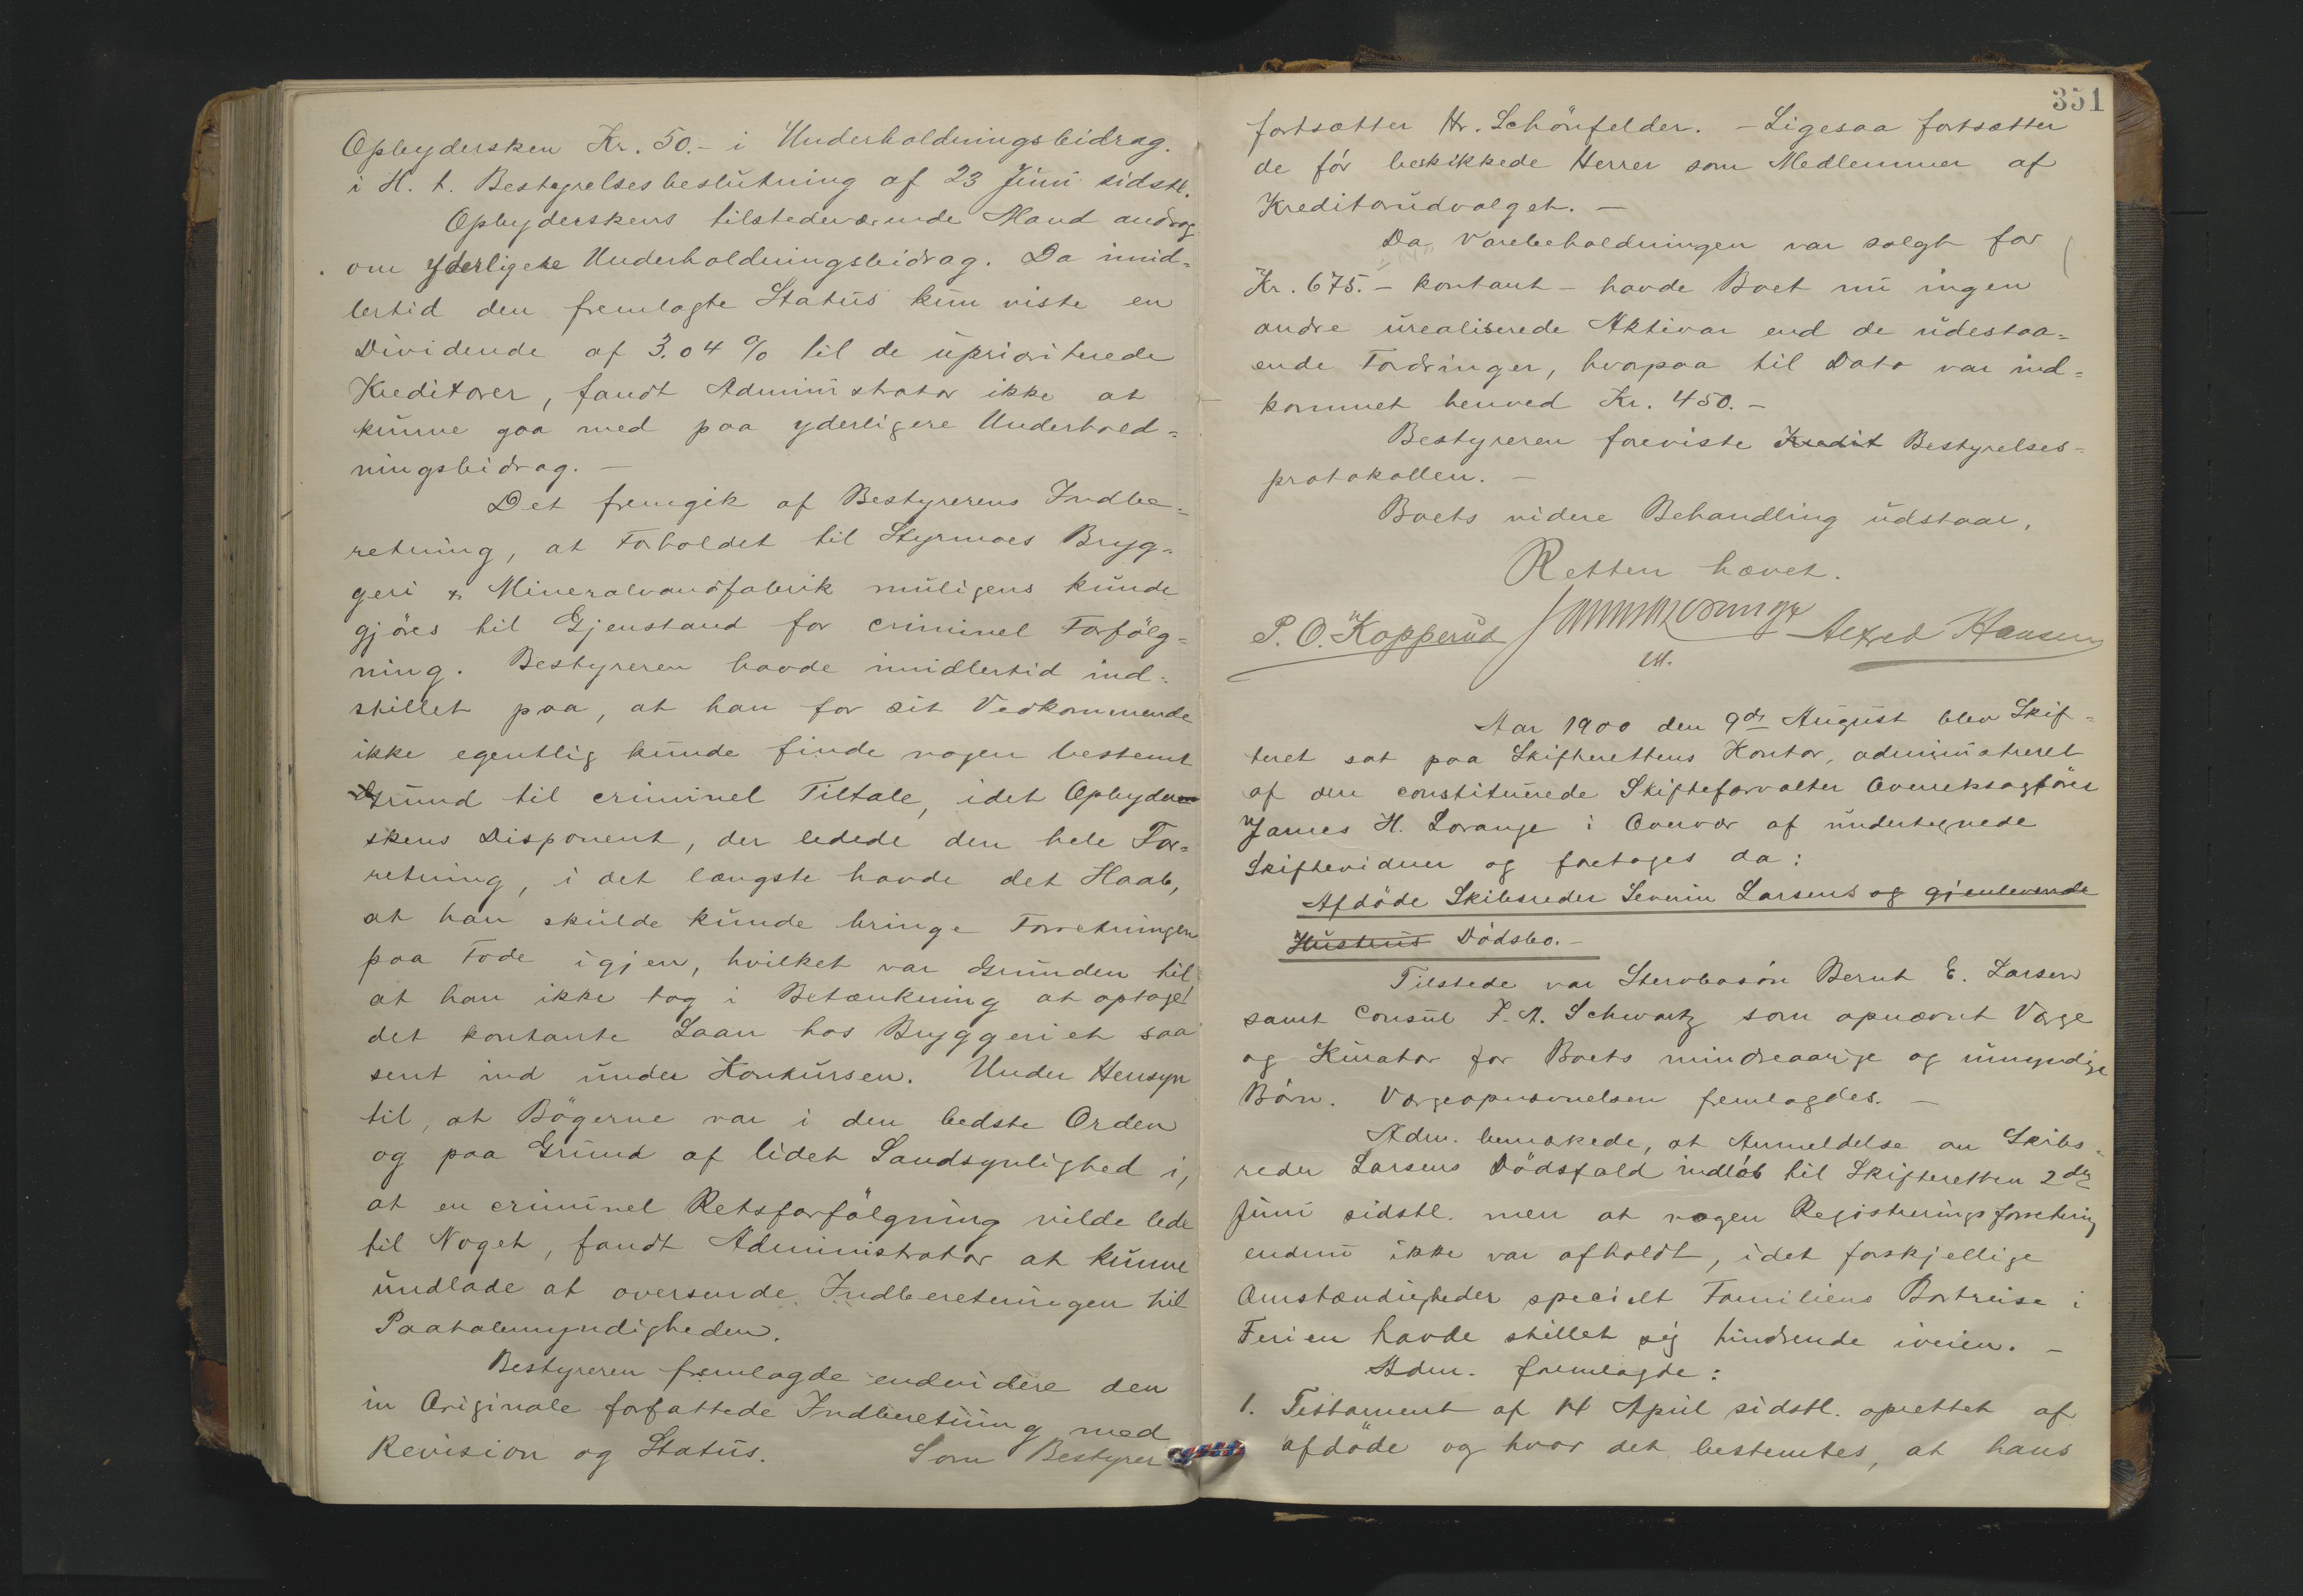 Opbydersken Kr. 50.- i Underholdningsbidrag.
i H. t. Bestyrelsesbeslutning af 23 Juni sidstl.
Opbyderskens tilstedeværende Mand androg
om yderligere Underholdningsbidrag. Da imid=
lertid den fremlagte Status kun viste en
Dividende af 3.04 % til de uprioriterede
Kreditorer, fandt Administrator ikke at
kunne gaa med paa yderligere Underhold=
ningsbidrag. —
Det fremgik af Bestyrerens Indbe=
retning, at Forholdet til Styrmoes Bryg=
geri & Mineralvandfabrik muligens kunde
gjöres til Gjenstand for criminel Forfölg=
ning. Bestyreren havde imidlertid ind=
stillet paa, at han for sit Vedkommende
ikke egentlig kunde finde nogen bestemt
Grund til criminel Tiltale, idet Opbyder
skens Disponent, der ledede den hele For=
retning, i det længste havde det Haab,
at han skulde kunde bringe Forretningen
paa Fode igjen, hvilket var Grunden til
at han ikke tog i Betænkning at optage
det kontante Laan hos Bryggeriet saa
sent ind under Konkursen. Under Hensyn
til, at Bögerne var i den bedste Orden
og paa Grund af lidet Sandsynlighed i,
at en criminel Retsforfölgning vilde lede
til Noget, fandt Administrator at kunne
undlade at oversende Indberetningen til
Paatalemyndigheden.
Bestyreren fremlagde endvidere den
in Originale forfattede Indberetning med
Revision og Status. Som Bestyrer
351
fortsætter Hr. Schönfelder. — Ligesaa fortsætter
de før beskikkede Herrer som Medlemmer af
Kreditorudvalget. —
Da Varebeholdningen var solgt for
Kr. 675.- kontant - havde Boet nu ingen
andre urealiserede Aktivar end de udestaa=
ende Fordringer, hvorpaa til Dato var ind=
kommet henved Kr. 450.—
Bestyreren foreviste Kredit Bestyrelses=
protokollen. —
Boets videre Behandling udstaar.
Retten hævet.
P. O. Kopperud James H. Lorange Alfred Hansen
cst.
Aar 1900 den 9de August blev Skif=
teret sat paa Skifterettens Kontor, administreret
af den constituerede Skifteforvalter Overretssagförer
James H. Lorange i Overvær af undertegnede
Skiftevidner og foretoges da:
Afdöde Skibsreder Severin Larsens og gjenlevende
Hustrus Dödsbo.—
Tilstede var Stervbosøn Bernt E. Larsen
samt Consul F. A. Schwartz som opnævnt Verge
og Kurator for Boets mindreaarige og umyndige
Børn. Vergeopnævnelsen fremlagdes. —
Adm. bemærkede, at Anmeldelse om Skibs=
reder Larsens Dödsfald indløb til Skifteretten 2den
Juni sidstl. men at nogen Registreringsforretning
endnu ikke var afholdt, idet forskjellige
Omstændigheder specielt Familiens Bortreise i
Ferien havde stillet sig hindrende iveien. —
Adm. fremlagde:
1. Testament af 14 April sidstl. oprettet af
afdöde og hvor det bestemtes, at hans